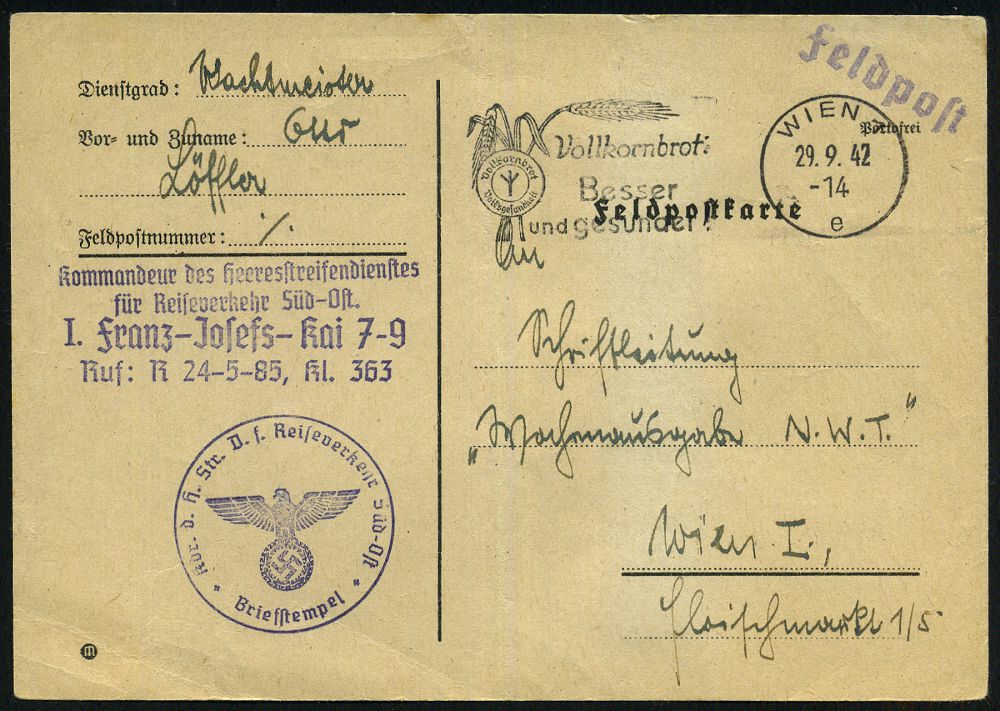 Dienstgrad: Wachtmeister
Vor- und Zuname: Otto
Löffler
Feldpostnummer: ./.
Kommandeur des Heeresstreifendienstes
für Reiseverkehr Süd-Ost.
I. Franz-Josefs-Kai 7-9
Ruf: R 24-5-85, Kl. 363
Kdr. d. H. Str. D. f. Reiseverkehr Süd-Ost
* Briefstempel *
Feldpost
Portofrei
WIEN
29.9.42
-14
e
Vollkornbrot:
Besser
und gesünder!
Vollkornbrot
Volksgesundheit
Feldpostkarte
An
Schriftleitung
„Wochenausgabe N.W.T."
Wien I.,
Fleischmarkt 1/5